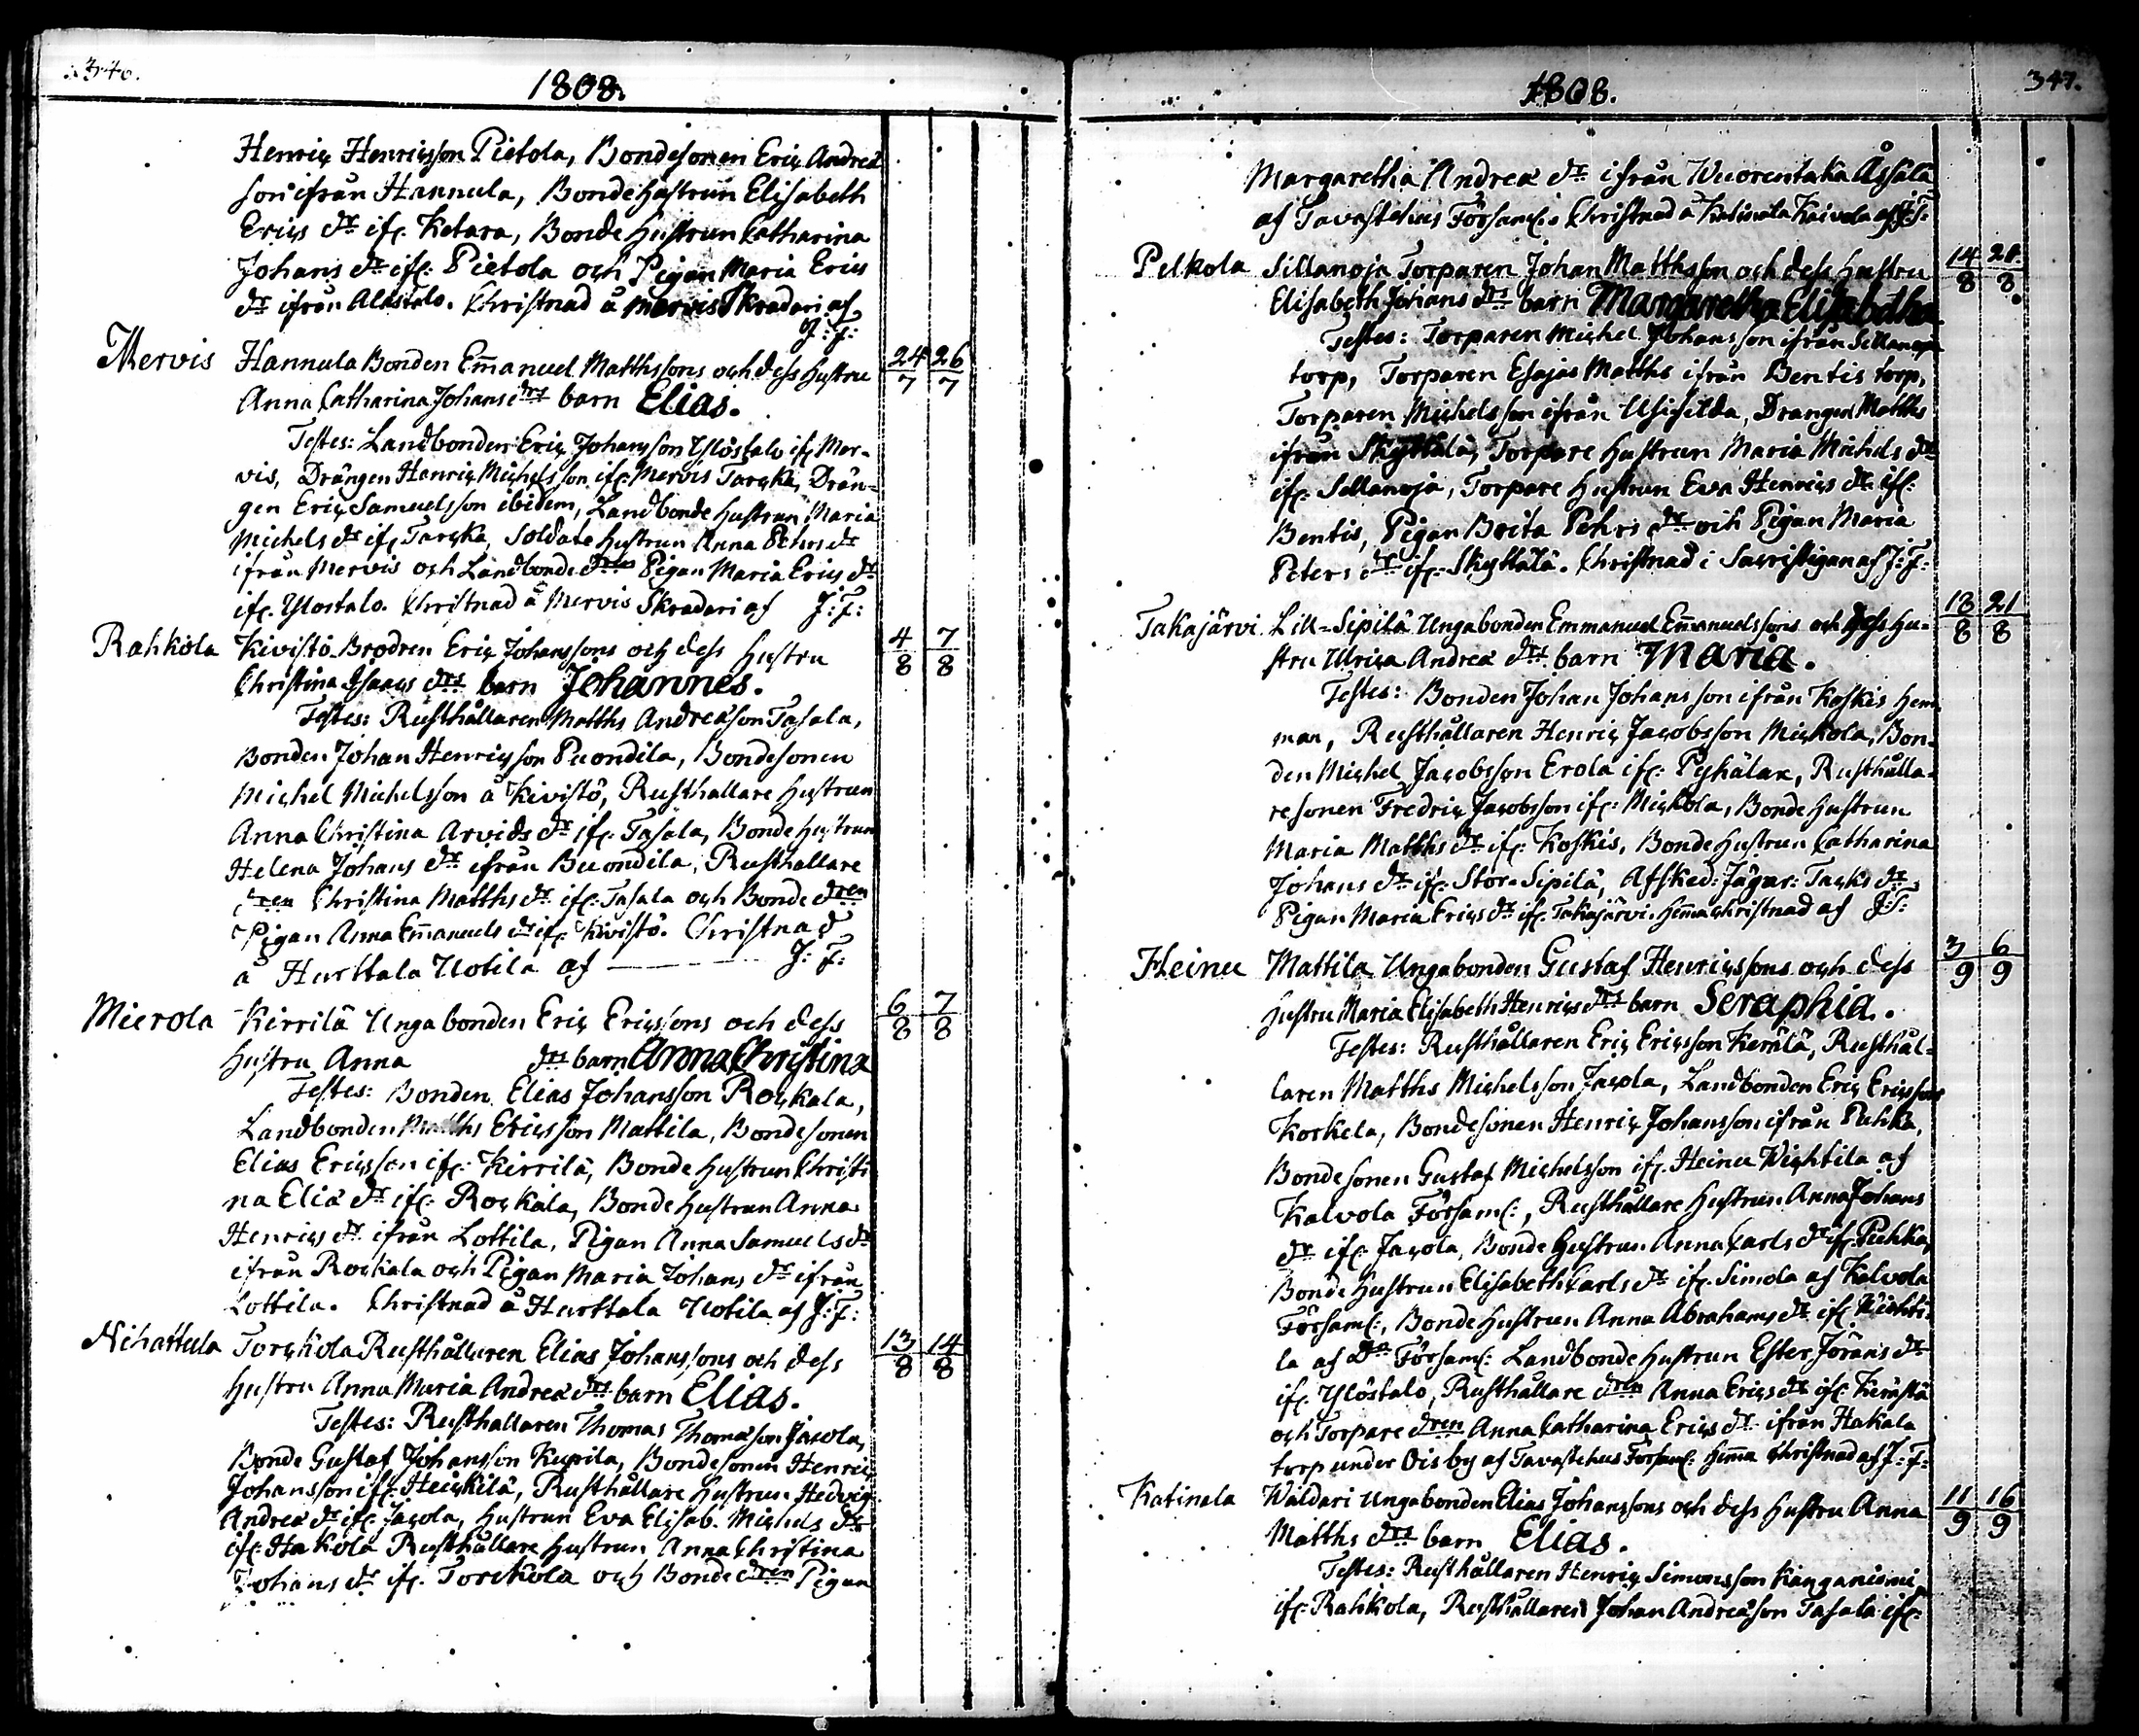 340.
1808.
Henric Henricsson Pietola, Bondesonen Eric Andreæ
son ifrån Hannula, Bondehustrun Elisabeth
Erics dr ifr: Ketara, Bonde hustrun Catharina
Johans dr ifr: Pietola och Pigan Maria Erics
dr ifrån Alastalo. Christnad å Mervis Skradari af
J: F:
Mervis Hannula Bonden Em̄anuel Matthssons och dess hustru 24/7 26/7
Anna Catharina Johans drs barn Elias.
Testes: Landbonden Eric Johansson Ylöstalo ifr Mer-
vis, Drängen Henric Michelsson ifr: Mervis Tarcka, Drän-
gen Eric Samuelsson ibidem, Landbonde hustrun Maria
Michels dr ifr Tarcka, Soldate hustrun Anna Pehrs dr
ifrån Mervis och Landbonde dren Pigan Maria Erics dr
ifr. Ylostalo. Christnad å Mervis Skradari af J: F:
Rahkola Kivistö Brodren Eric Johanssons och dess hustru 4/8 7/8
Christina Isaacs drs barn Johannes.
Testes: Rusthållaren Matths Andreæson Tasala,
Bonden Johan Henricsson Puondila, Bondesonen
Michel Michelsson å Kivistö, Rusthallare hustrun
Anna Christina Arvids dr ifr: Tasala, Bonde hustrun
Helena Johans dr ifrån Buondila, Rusthallare
dren Christina Matths dr ifr: Tasala och Bonde dren
Pigan Anna Em̄anuels dr ifr Kivistö. Christnad
å Hurttala Uotila af J: F:
Mierola Kirrilä Ungabonden Eric Ericssons och dess 6/8 7/8
hustru Anna drs barn Anna Christina
Testes: Bonden Elias Johansson Rockala,
Landbonden Matths Ericsson Mattila, Bondesonen
Elias Ericsson ifr: Kirrilä, Bonde hustrun Christi
na Eliæ dr ifr: Rockala, Bonde hustrun Anna
Henrics dr ifrån Lottila, Pigan Anna Samuels dr
ifrån Rockala och Pigan Maria Johans dr ifrån
Lottila. Christnad å Hurttala Uotila af J: F:
Nihattula Torckola Rusthållaren Elias Johanssons och dess 13/8 14/8
hustru Anna Maria Andreæ drs barn Elias.
Testes: Rusthallaren Thomas Thomæson Jacola,
Bonde Gustaf Johansson Kupila, Bondesonen Henric
Johansson ifr: Heickilä, Rusthållare hustrun Hedvig
Andreæ dr ifr: Jacola, hustrun Eva Elisab. Michels dr
ifr: Hakola Rusthållare hustrun Anna Christina
Johans dr ifr. Torckola och Bonde dren Pigan
347.
1808.
Margaretha Andreæ dr ifrån Wuorentaka Åssala
af Tavastehus Församl: Christnad å Katinala Kaivola af J: F:
Pelkola Sillanoja Torparen Johan Matthsson och dess hustru 14/8 21/8
Elisabeth Johans drs barn Margaretha Elisabetha
Testes: Torparen Michel Johansson ifrån Sillanoja
torp, Torparen Esajas Matths ifrån Bentis torp,
Torparen Michelsson ifrån Drangen Matths
ifrån Skyttälä, Torpare hustrun Maria Michels dr
ifr: Sillanoja, Torpare hustrun Eva Henrics dr ifr:
Bentis, Pigan Brita Pehrs dr och Pigan Maria
Peters dr ifr: Skyttälä. Christnad i Sacristigan af J: F:
Takajärvi Lill-Sipilä Ungabonden Emmanuel Em̄anuelssons och dess hu- 18/8 21/8
stru Ulrica Andreæ drs barn Maria.
Testes: Bonden Johan Johansson ifrån Koskis hem
man, Rusthållaren Henric Jacobsson Mickola, Bon-
den Michel Jacobsson Erola ifr: Pyhälax, Rusthålla-
resonen Fredric Jacobsson ifr: Mickola, Bonde hustrun
Maria Matths dr ifr: Koskis, Bonde hustrun Catharina
Johans dr ifr: Stor-Sipilä, Afsked: Jägar: Tacks dr
Pigan Maria Erics dr ifr. Takajärvi. Hem̄a christnad af J: F:
Heinu Mattila Ungabonden Gustaf Henricssons och dess 3/9 6/9
hustru Maria Elisabeth Henrics drs barn Seraphia.
Testes: Rusthållaren Eric Ericsson Kerälä, Rusthål-
laren Matths Michelsson Jacola, Landbonden Eric Ericsson
Korkela, Bondesonen Henric Johansson ifrån Puhka,
Bondesonen Gustaf Michelsson ifr. Heinu Wichtila af
Kalvola Församl:, Rusthållare hustrun Anna Johans
dr ifr: Jacola, Bonde hustrun Anna Carls dr ifr. Puhka,
Bonde hustrun Elisabeth Carls dr ifr. Simola af Kalvola
Församl:, Bonde hustrun Anna Abrahams dr ifr Wichti-
la af Do Församl: Landbonde hustrun Ester Jörans dr
ifr. Ylöstalo, Rusthållare dren Anna Erics dr ifr: Kerälä
och Torpare dren Anna Catharina Erics dr ifrån Hakala
torp under Oisby af Tavastehus Församl: Hem̄a Christnad af J: F:
Katinala Waldari Ungabonden Elias Johanssons och dess hustru Anna 11/9 16/9
Matths drs barn Elias.
Testes: Rusthållaren Henric Simonsson Kanganiemi
ifr: Rahkola, Rusthållaren Johan Andreæson Tasala ifr: